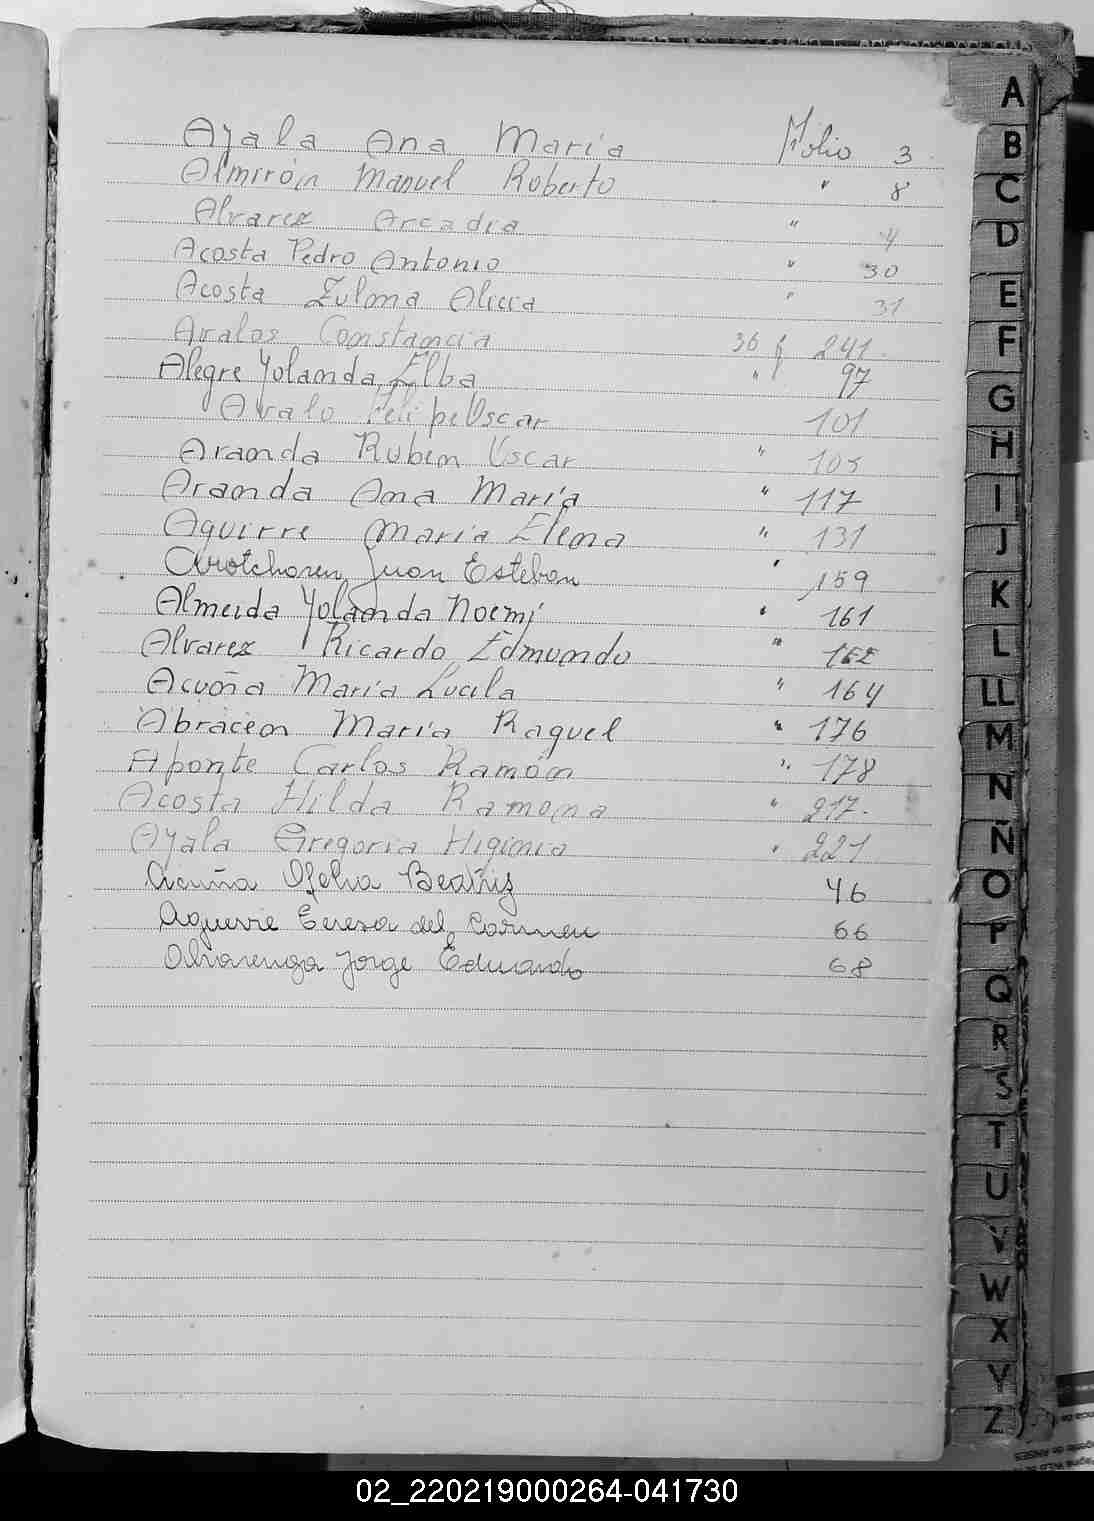 Ayala Ana María Folio 3
Almirón Manuel Roberto " 8
Alvarez Arcadia " 4
Acosta Pedro Antonio " 30
Acosta Zulma Alicia " 31
Avalos Constancia 36 y 241
Alegre Yolanda Elba " 97
Avalo Felipe Oscar 101
Aranda Ruben Oscar " 105
Aranda Ana María " 117
Aguirre María Elena " 131
Arotcharen Juan Esteban " 159
Almeida Yolanda Noemí " 161
Alvarez Ricardo Edmundo " 162
Acuña María Lucila " 164
Abraceon María Raquel " 176
Aponte Carlos Ramón " 178
Acosta Hilda Ramona " 217
Ayala Gregoria Higinia " 221
Acuña Ofelia Beatriz 46
Aguerre Teresa del Carmen 66
Alvarenga Jorge Eduardo 68
A
B
C
D
E
F
G
H
I
J
K
L
LL
M
N
Ñ
O
P
Q
R
S
T
U
V
W
X
Y
Z
02_220219000264-041730